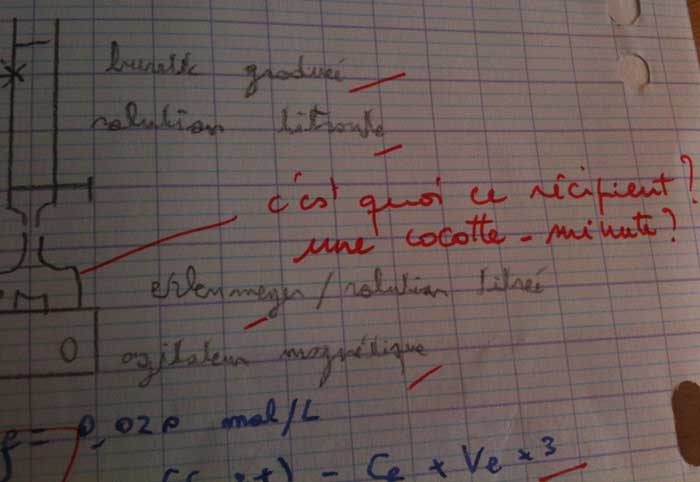 burette graduée
solution titrante
c'est quoi ce récipient?
une cocotte-minute?
erlenmeyer/solution titrée
agitateur magnétique
= 0,020 mol/L
- Ce × Ve × 3